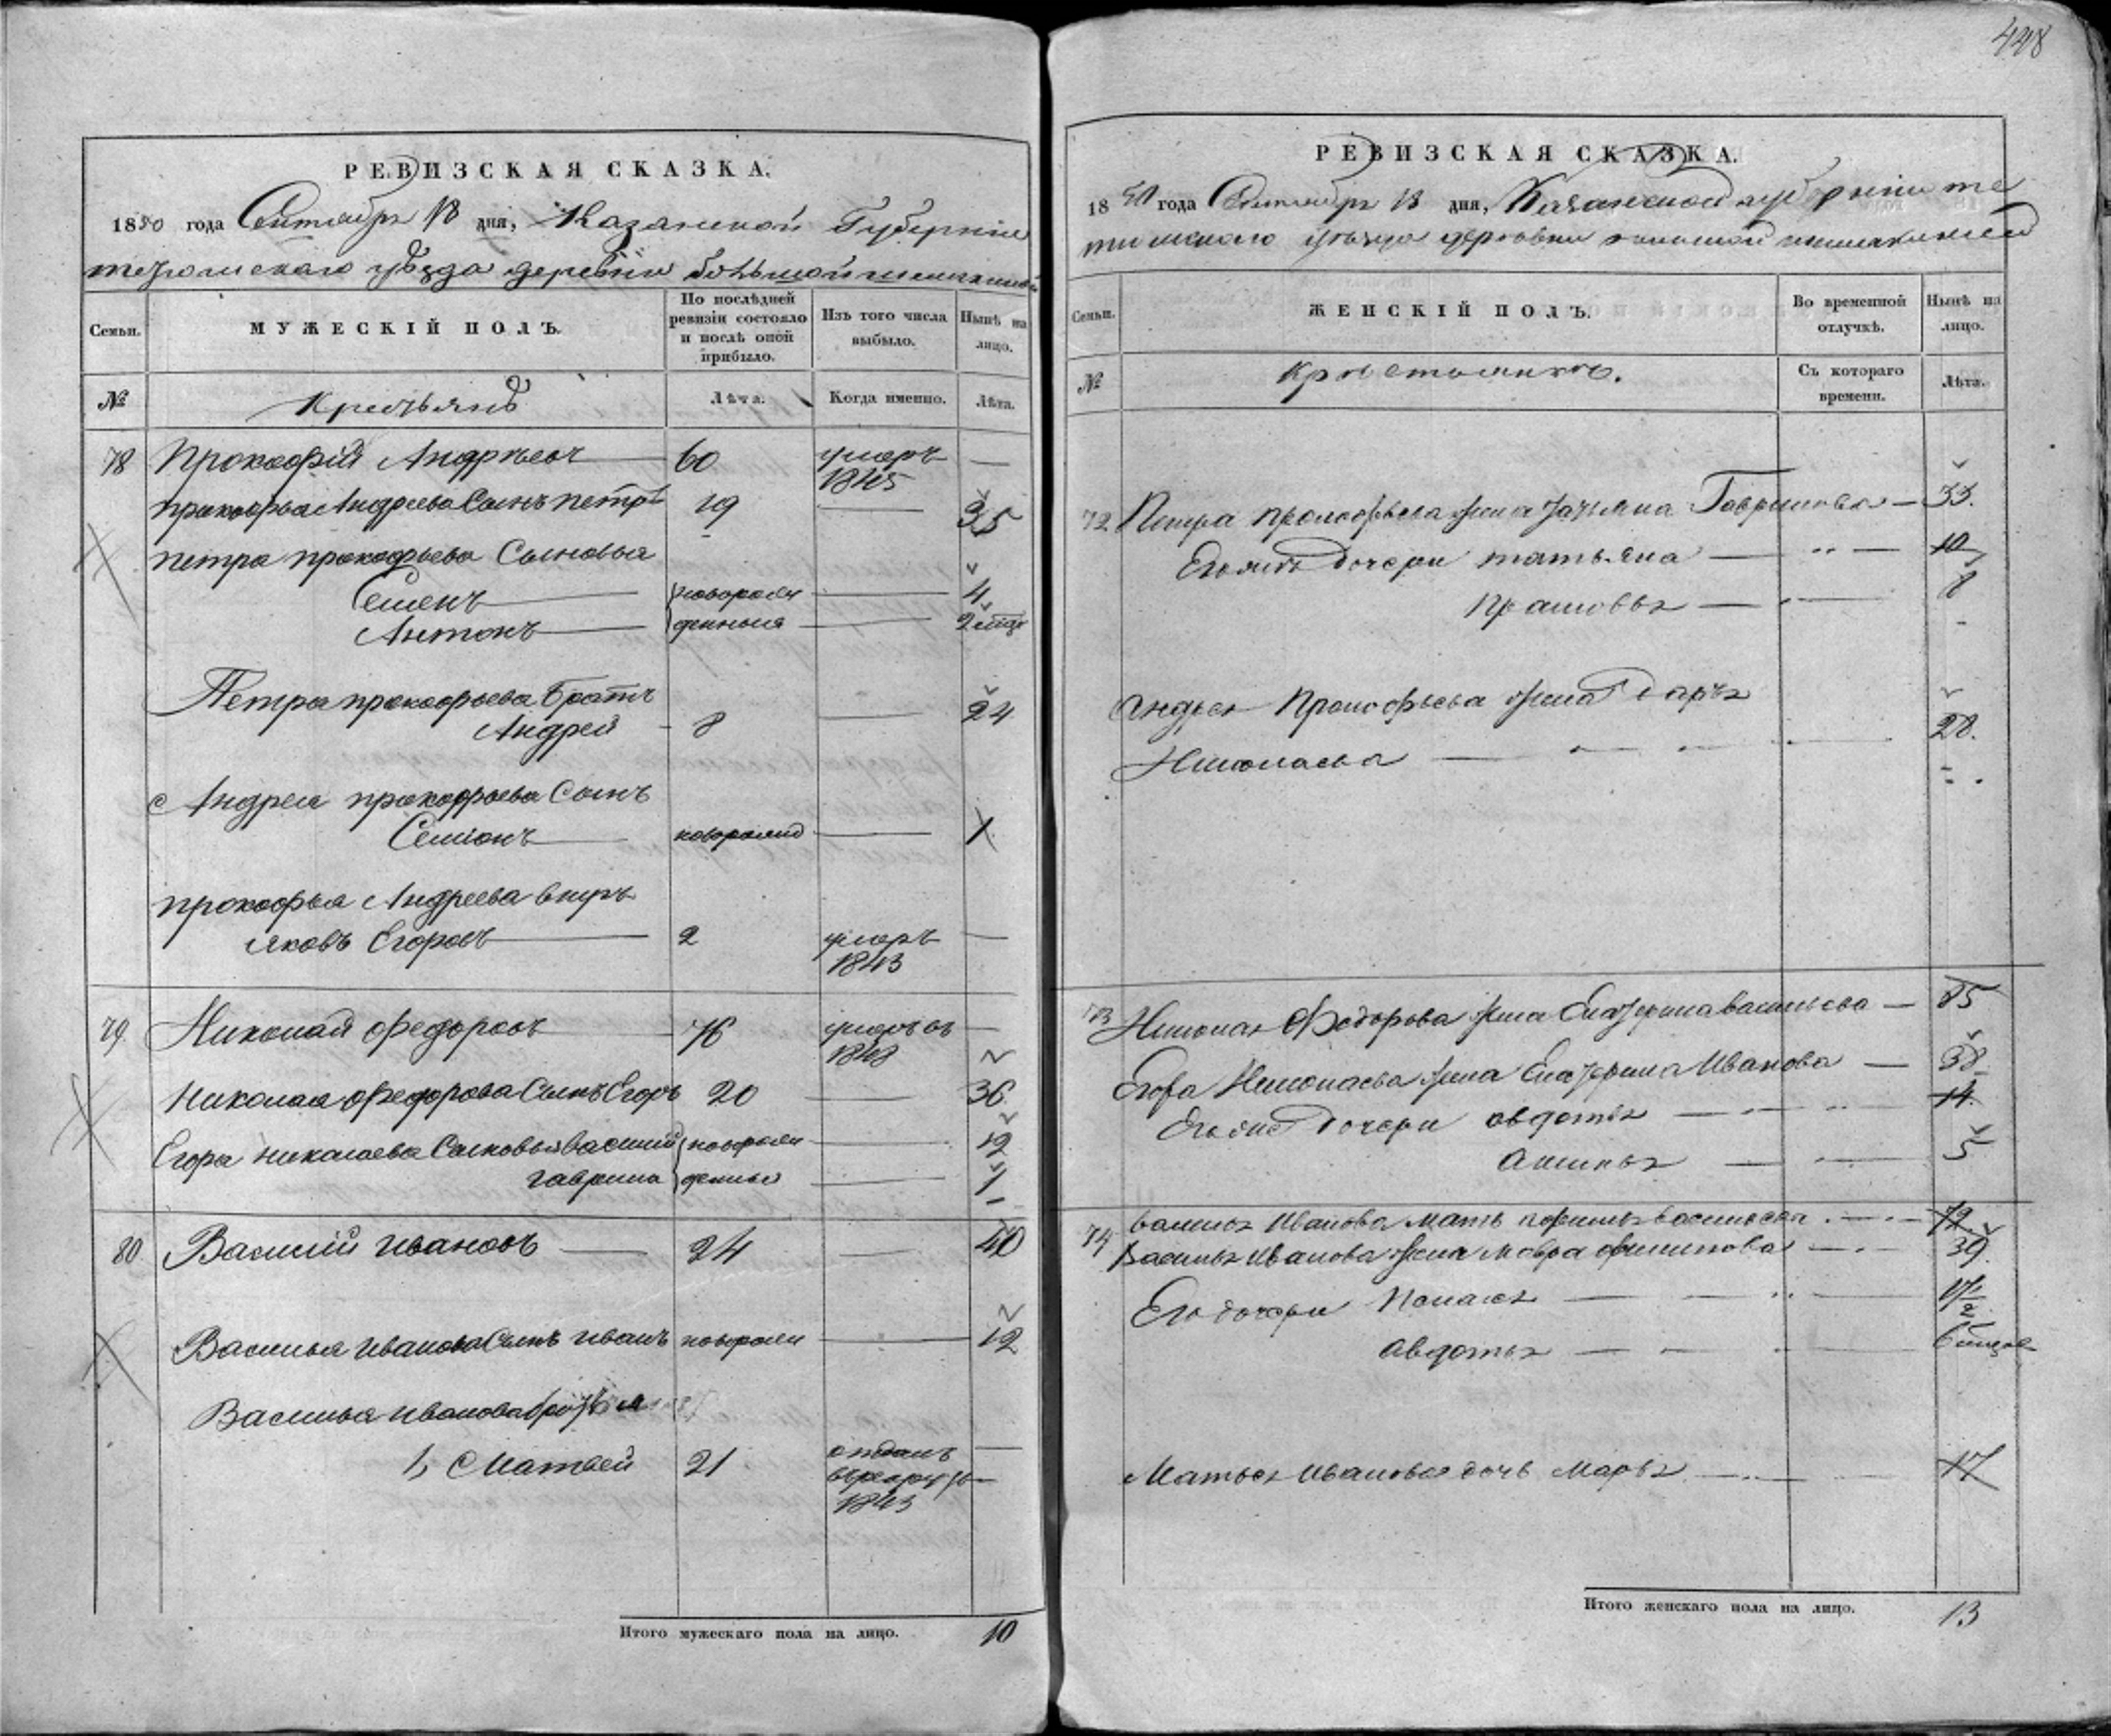 448
РЕВИЗСКАЯ СКАЗКА.
1850 года Сентября 18 дня, Казанской Губернии
тетюшскаго уѣзда деревни большой
Семьи.
МУЖЕСКІЙ ПОЛЪ.
По послѣдней ревизіи состояло и послѣ оной прибыло.
Изъ того числа выбыло.
Нынѣ на лицо.
№
Крестьянъ
Лѣта.
Когда именно.
Лѣта.
78 Прокофій Андрѣевъ 60 умеръ 1845 —
прокофья Андреева Сынъ петръ 19 — 35
петра прокофьева Сыновья
Семенъ новорож 4
Антонъ денныя 2
Петра прокофьева Братъ
Андрей 8 — 24
Андрея прокофьева Сынъ
Семіонъ новорожд — 1
прокофья Андреева внукъ
Яковъ Егоровъ 2 умеръ 1843 —
79 Николай Федоровъ 76 умеръ въ 1848 —
Николая Федорова Сынъ Егоръ 20 — 36
Егора николаева Сыновья василий новорож — 12
гаврила денные — 1
80 Василій Ивановъ — 24 — 40
Василья Иванова Сынъ иванъ новорож — 12
Василья иванова братья
1, Матвей 21 отданъ в рекруты 1843 —
Итого мужескаго пола на лицо. 10
РЕВИЗСКАЯ СКАЗКА.
1850 года Сентября 18 дня, Казанской губерніи те
тюшского уѣзда деревни большой
Семьи.
ЖЕНСКІЙ ПОЛЪ.
Во временной отлучкѣ.
Нынѣ на лицо.
№
Крѣстьянкъ.
Съ котораго времени.
Лѣта.
72 Петра прокофьева жена Татьяна Гаврилова — 33.
Его дочери татьяна — 10
Прасковья — 8
Андрея Прокофьева жена Дарья
Николаева — 28.
73 Николая Федорова жена Екатерина васильева — 85
Егора Николаева жена Екатерина Иванова — 38
дочери авдотья — 14
Акилина — 5
74 Василья Иванова мать васильева — 72
Василья Иванова жена Мавра филипова — 39.
Его дочери Пелагея — 1 1/2
авдотья — 6
Матвея Иванова дочь Марья — 17
Итого женскаго пола на лицо. 13